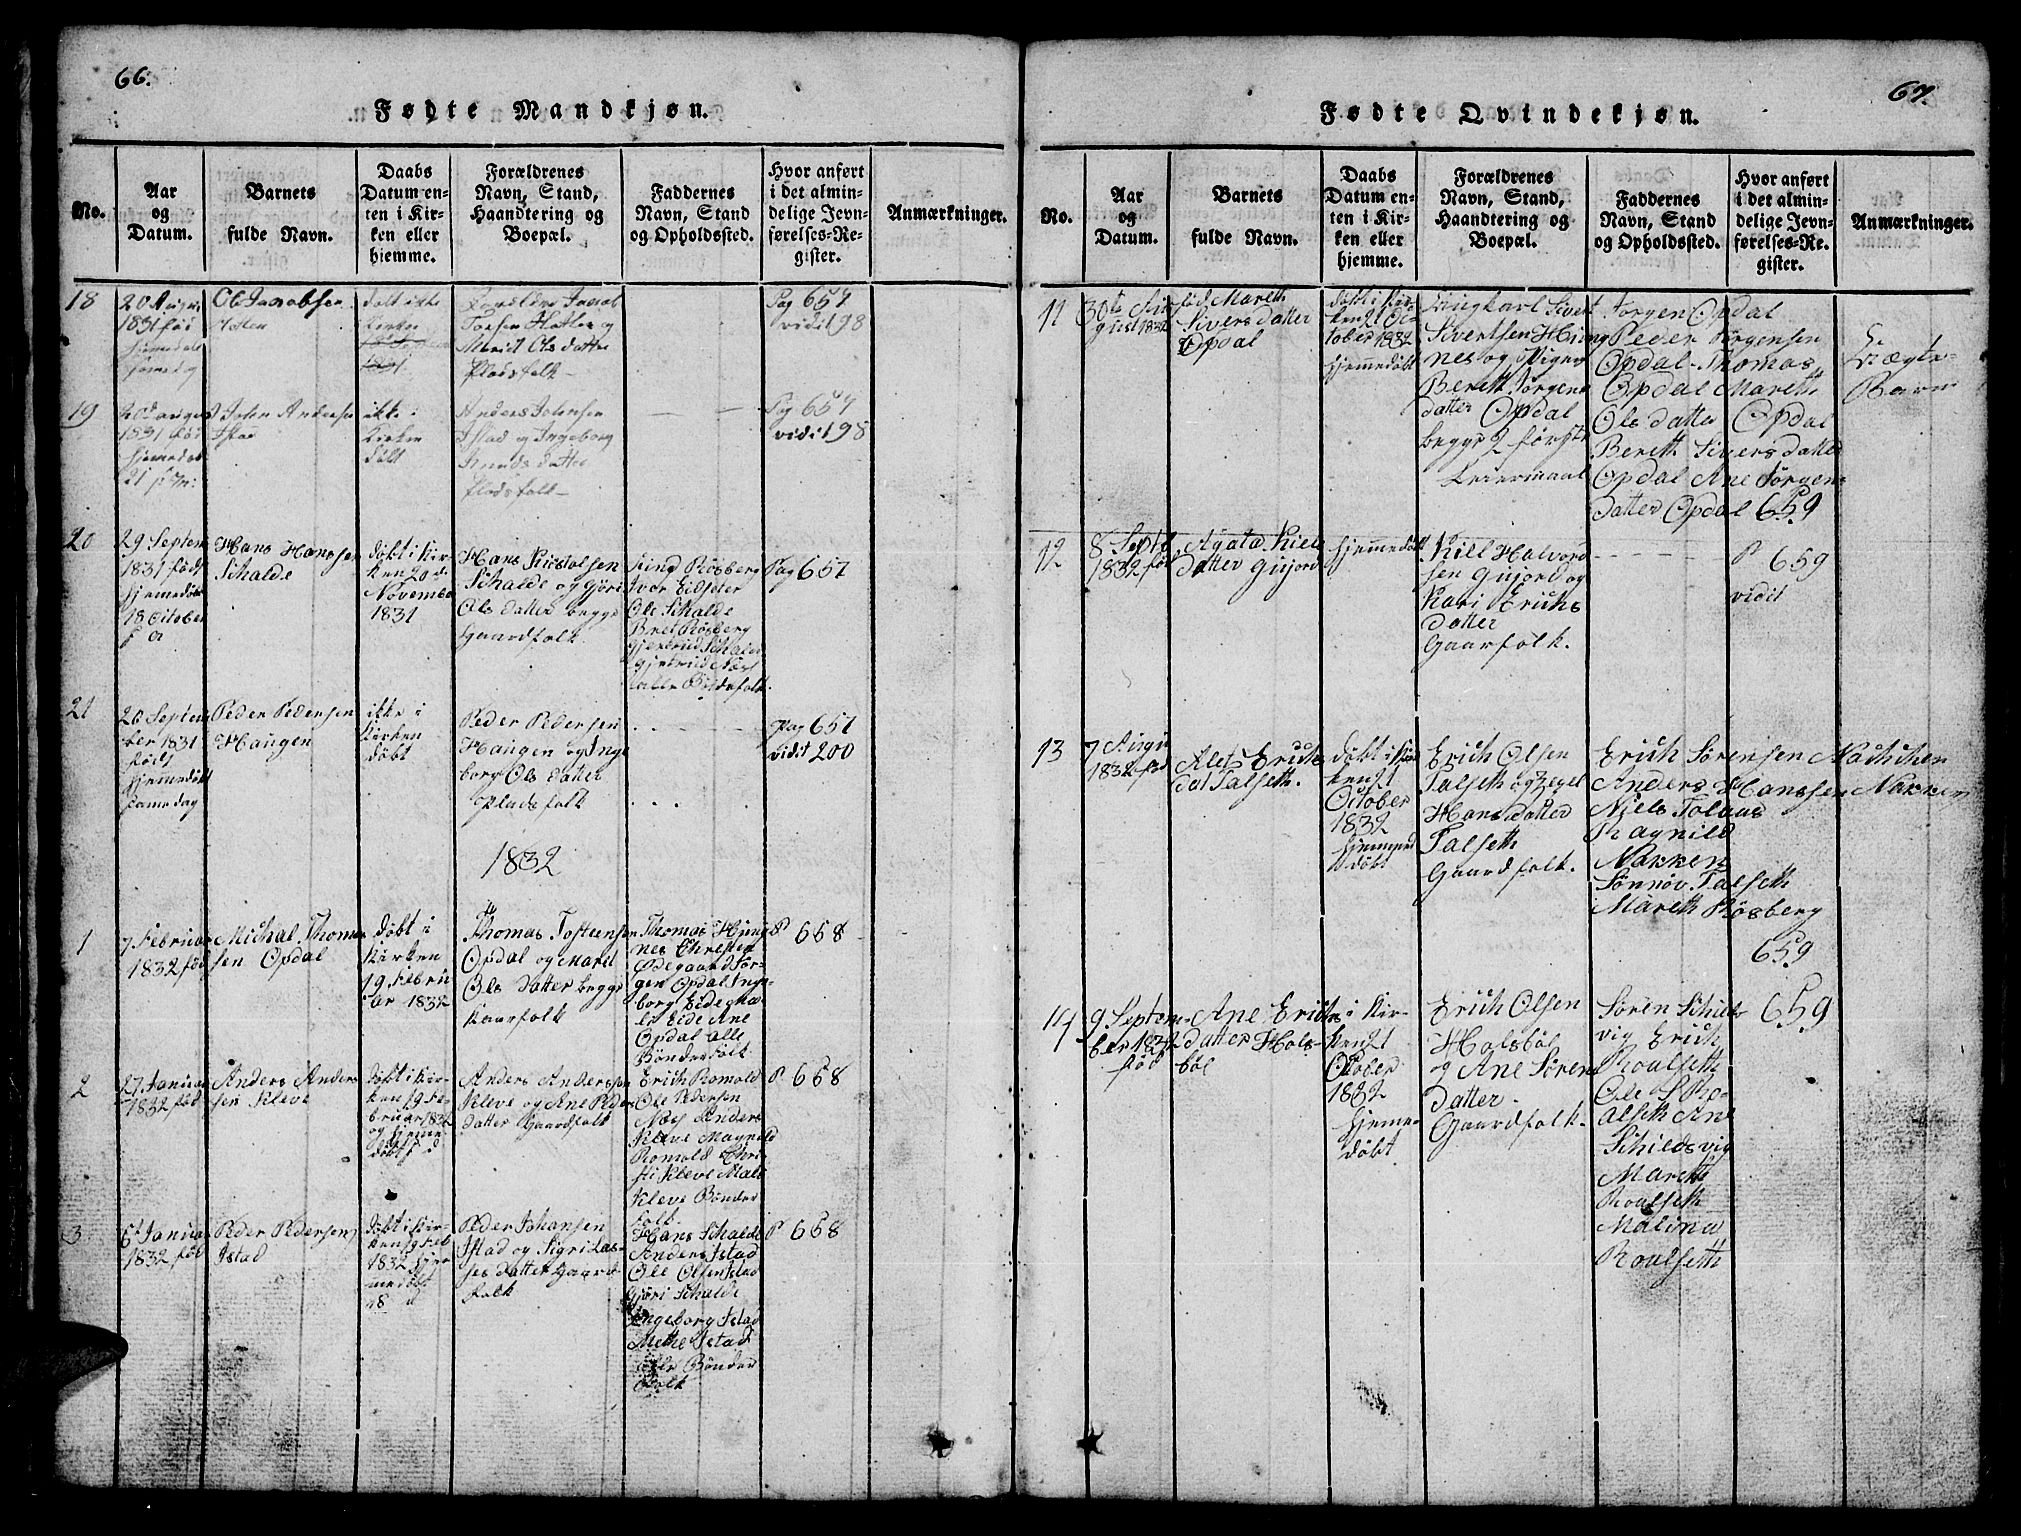 66.
Fødte Mandkjøn.
No.
Aar
og
Datum.
Barnets
fulde Navn.
Daabs
Datum en-
ten i Kir-
ken eller
hjemme.
Forældrenes
Navn, Stand,
Haandtering og
Boepæl.
Faddernes
Navn, Stand
og Opholdssted.
Hvor anført
i det almin-
delige Jevn-
førelses-Re-
gister.
Anmærkninger.
18
20 August
1831 fød
Ole Jacobsen
døbt ikke
Kirken
1831
Forældre Jacob
Marit Ols datter
Pladsfolk
Pag 657
vidit 198
19
1831 fød
hjemedøbt
John Andersen
Istad
ikke i
Kirken
døbt
Anders Johnsen
Istad og Ingeborg
Knuds datter
Pladsfolk
Pag 657
vidit 198
20
29 Septem
1831 født
hjemedøbt
18 October
Hans Hanssen
Schalde
døbt i Kir-
ken 20de
November
1831
Hans Christofsen
Schalde og Gjøri
Ols datter begge
Gaardfolk
Røsberg
Ivor Eilseter
Ole Schalde
Bret Røsberg
Gjertrud Schalde
Gjertrud Næs
alle Bøndefolk.
Pag 657
21
20 Septem
ber 1831
født
hjemmedøbt
samedag
Peder Pedersen
Haugen
ikke i
Kirken
døbt
Peder Pedersen
Haugen og Inge
borg Ols datter
Pladsfolk
Pag 657
vidit 200
1832
1
7 Februar
1832 fød
Michal Thomas
sen Opdal
Døbt i
Kirken
19 Febru
ar 1832
Thomas Tosteensen
Opdal og Maret
Ols datter begge
Gaarfolk
Thomas Hjing
nes Christen
Ødegaard Jør-
gen Opdal Inge
borg Eide
Eide Ane
Opdal alle
Bønderfolk
P 658
2
27 Januar
1832 fød
Anders Anders
sen Kleve
Døbt i Kir-
ken 19 Fe-
bruar 1832
og hjeme
døbt
Anders Anderssen
Kleve og Ane Peders
datter Gaardfolk
Erich Romold
Ole Pedersen
Næs Anders
Kleve Magnild
Romold Chri-
sti Kleve Mali
Kleve Bønder
folk.
P 658
3
6 Januar
1832 fød
Peder Pedersen
Istad
Døbt i Kir-
ken 19 Feb
1832 hjem
medøbt
18 d
Peder Johansen
Istad og Sigri Las-
ses datter Gaard
folk
Hans Schalde
Anders Istad
Ole Olsen Istad
Gjøri Schalde
Ingeborg Istad
Methe Istad
alle Bønder
folk
P 658
67.
Fødte Qvindekjøn.
No.
Aar
og
Datum.
Barnets
fulde Navn.
Daabs
Datum en-
ten i Kir-
ken eller
hjemme.
Forældrenes
Navn, Stand,
Haandtering og
Boepæl.
Faddernes
Navn, Stand
og Opholdssted.
Hvor anført
i det almin-
delige Jevn-
førelses-Re-
gister.
Anmærkninger.
11
30te Au
gust 1832
fød Mareth
Sivers datter
Opdal
Døbt i Kir-
ken 21 Oc-
tober 1832
hjemmedøbt
Ungkarl Sivert
Sivertsen Hjelng
nes og Pigen
Berett Jørgens
datter Opdal
begge 2 første
Leiermaal
Jørgen Opdal
Peder Jørgensen
Opdal Thomas
Opdal Mareth
Ols datter Opdal
Bereth Sivers datter
Opdal Ane Jørgens
datter Opdal
P 659
Uægte
Barn
12
8 Septb
1832 fød
Agata Kiels
datter Gujord
hjemmedøbt
Kiell Halvord
sen Gujord og
Kari Erichs
datter
Gaarfolk.
P 659
vidit
13
7 Augu
1832 fød
Alet Erichs
dat Talseth.
Døbt i Kir
ken 21
October
1832
hjemme
døbt
Erich Olsen
Talseth og Zegel
Hansdatter
Talseth
Gaardfolk.
Erich Sørensen
Anders Hanssen Nakken
Niels Tolaas
Ragnild
Nakken
Sønnøv Talseth
Mareth Røsberg
659
14
9 Septem-
ber 1832
fød
Ane Erichs
datter Hols-
bøl
i Kir-
ken 21
October
1832
hjeme-
døbt
Erich Olsen
Holsbøl
og Ane Sørens
datter
Gaardfolk.
Søren Schilds
vig Erich
Roalseth
Ole S Ro-
alseth Ane
Schildsvig
Mareth
Roalseth
Malina
Roalseth
659